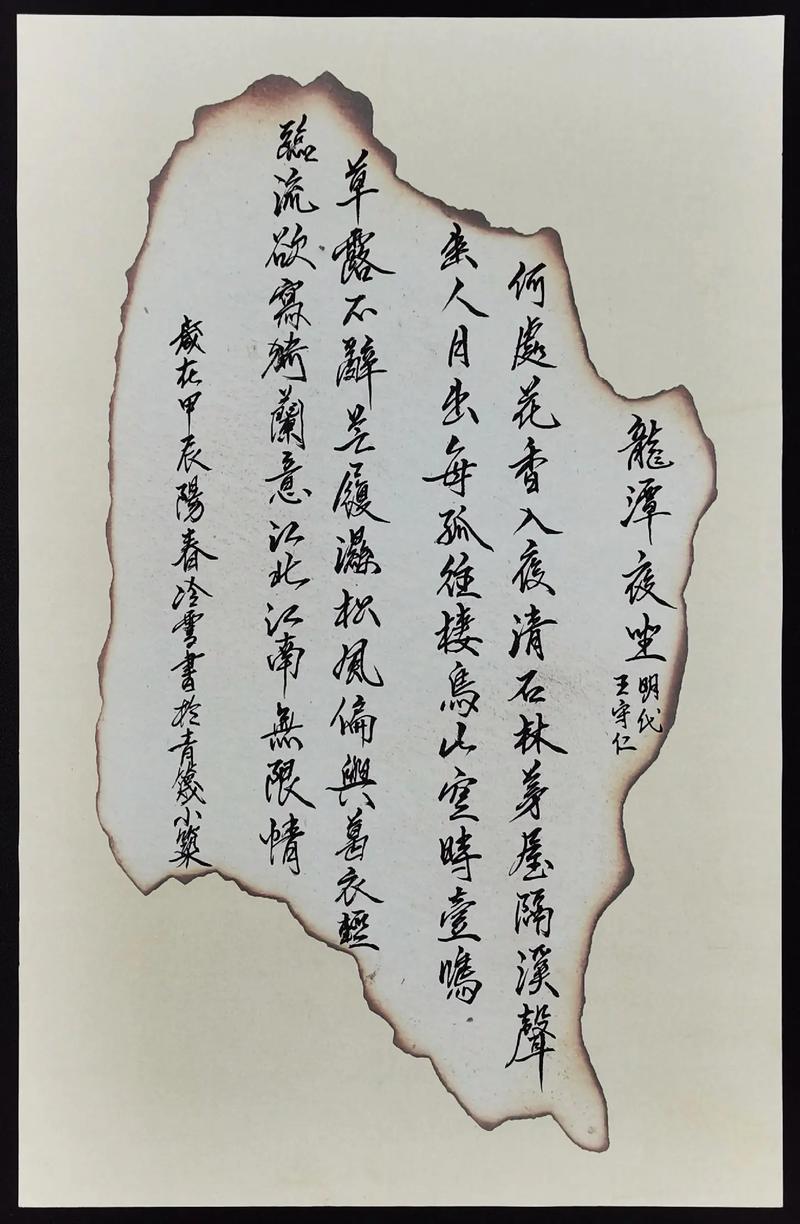 龍潭夜坐
明代
王守仁
何處花香入夜清石林茅屋隔溪聲
幽人月出每孤往棲鳥山空時壹鳴
草露不辭芒履濕松風偏與葛衣輕
臨流欲寫猗蘭意江北江南無限情
歲在甲辰陽春冷雪書於青篾小築